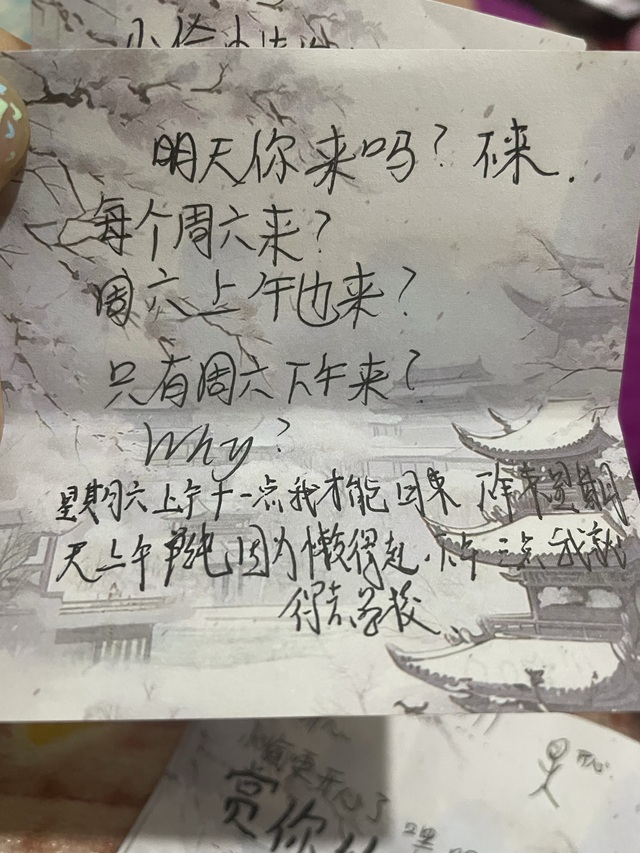 明天你来吗？不来.
每个周六来？
周六上午也来？
只有周六下午来？
Why?
星期六上午十一点我才能回来
天上午 单纯因为懒得起. 下午三点我就
得去学校
更开心了
开心
赏你
嘿